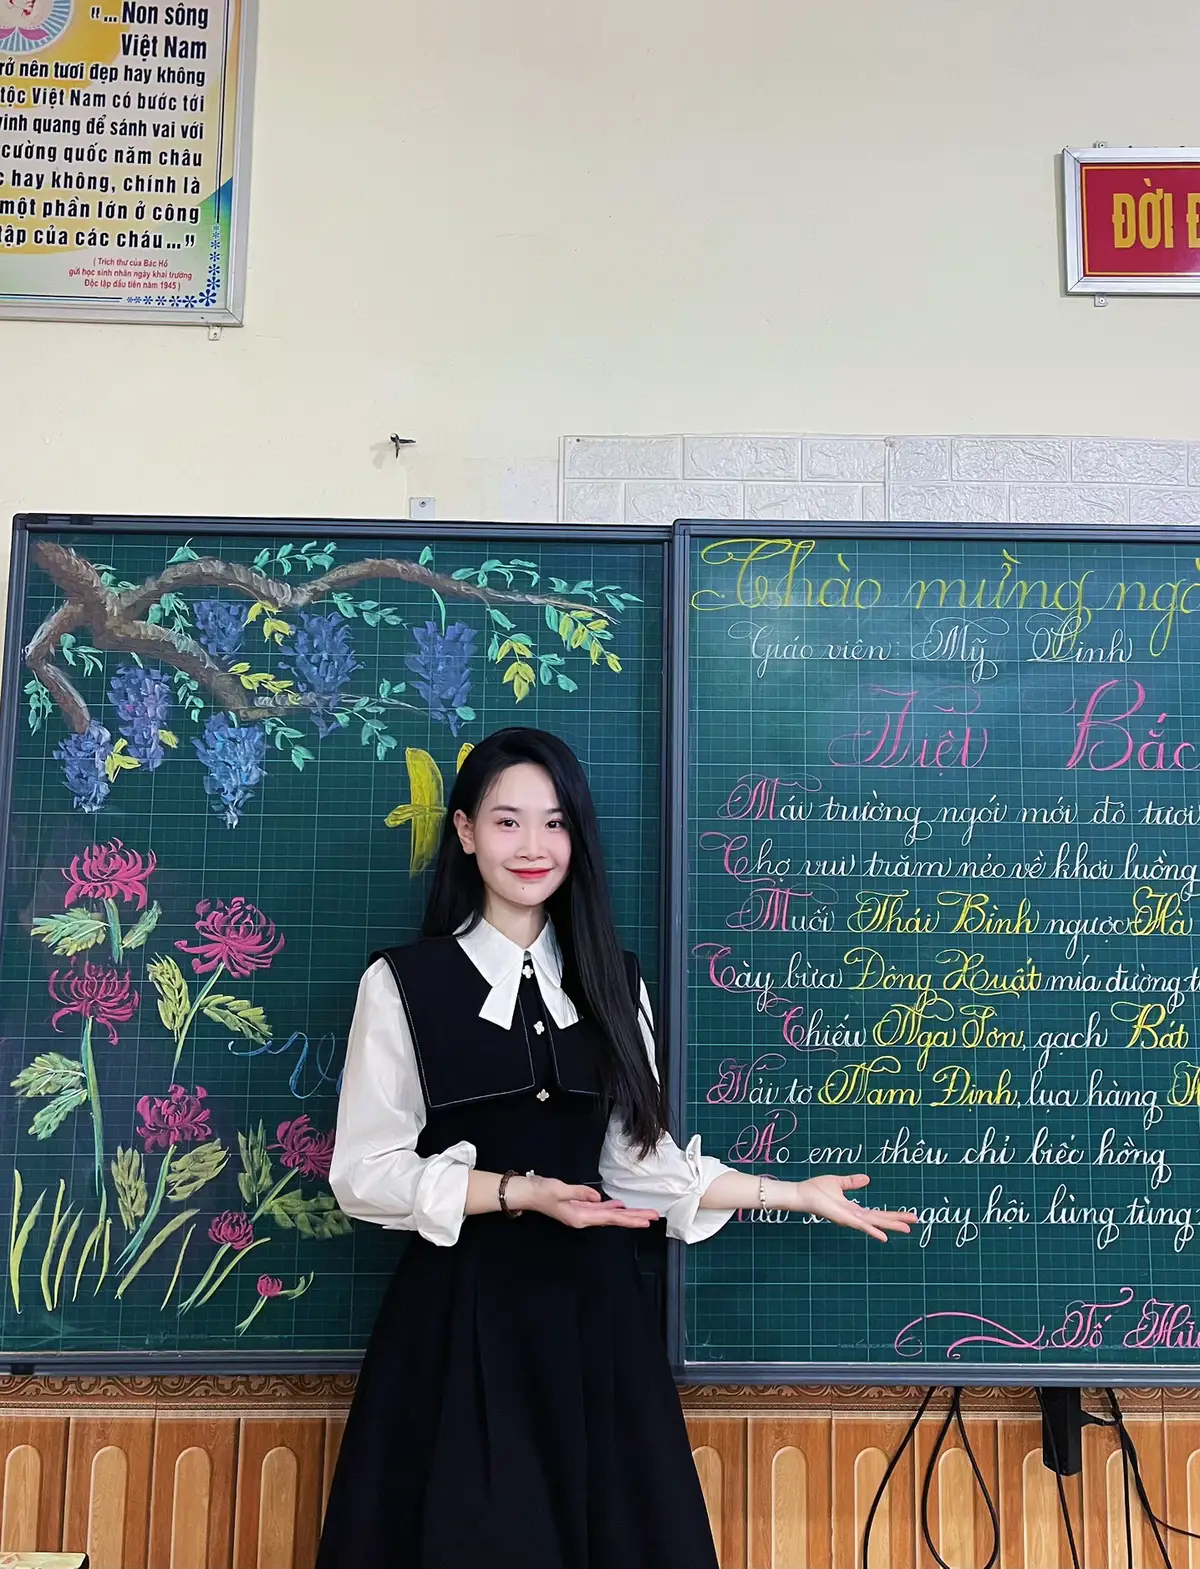 “...Non sông
Việt Nam
trở nên tươi đẹp hay không
tộc Việt Nam có bước tới
vinh quang để sánh vai với
cường quốc năm châu
hay không, chính là
một phần lớn ở công
tập của các cháu...”
( Trích thư của Bác Hồ
gửi học sinh nhân ngày khai trường
Độc lập đầu tiên năm 1945 )
ĐỜI
Chào mừng ngà
Giáo viên: Mỹ Linh
Việt Bắc
Mái trường ngói mới đỏ tươi
Chợ vui trăm nẻo về khơi luồng
Muối Thái Bình ngược Hà
Cày bừa Đông Xuất mía đường t
Chiếu Nga Sơn, gạch Bát
Vải tơ Nam Định, lụa hàng
Áo em thêu chỉ biếc hồng
ngày hội lùng tùng
Tố Hữu